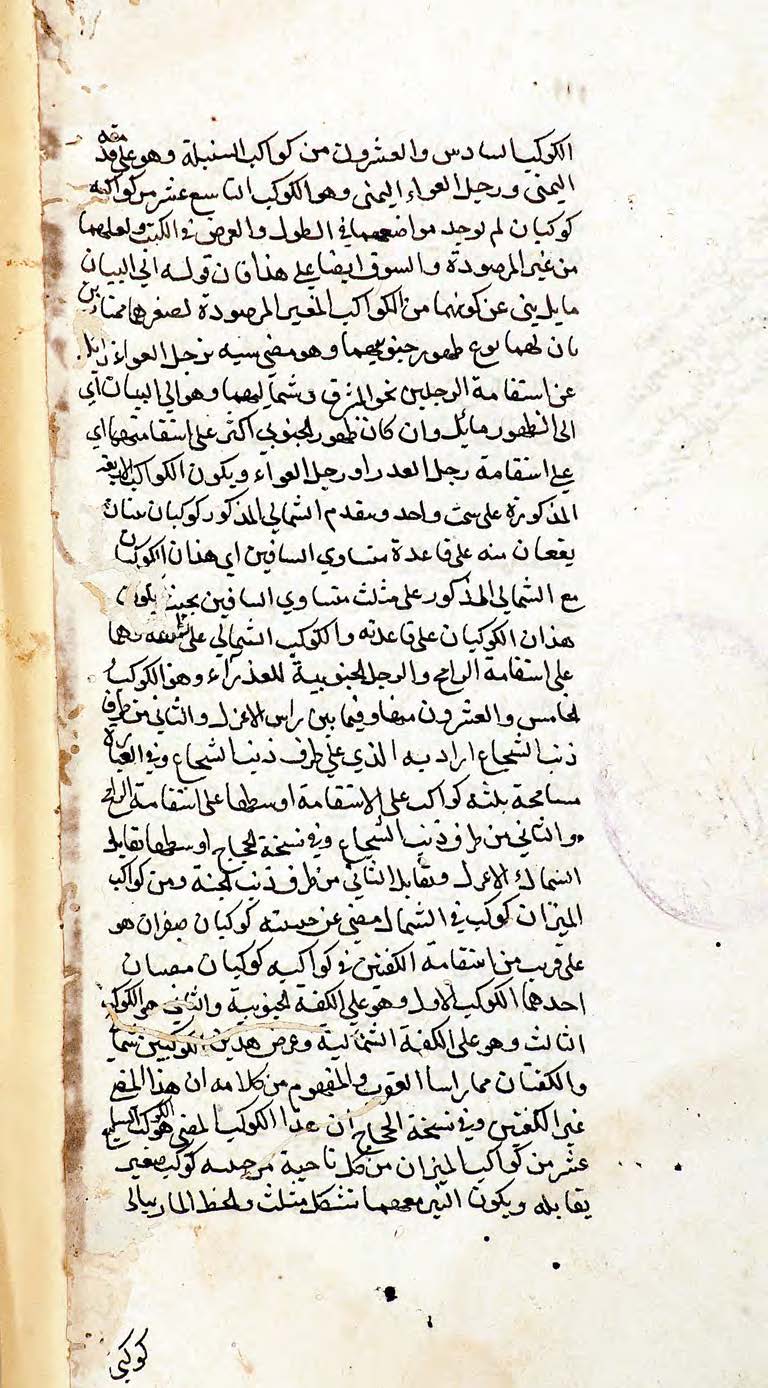 الكوكب السادس والعشرون من كواكب السنبلة وهو على قدمه
اليمنى ورجل العواء اليمنى وهو الكوكب التاسع عشر من كواكبه
كوكبان لم يوجد مواضعهما في الطول والعرض في الكتب ولعلهما
من غير المرصودة والسوق ايضا على هذا فان قوله الى البيان
ما يلـ ينبى عن كونهما من الكواكب الغير المرصودة لصغرهما
بان لهما نوع ظهور جنوبيهما وهو مضى سيه برجل العواء زايل
عن استقامة الرجلين نحو المشرق وشماليهما وهو الى البيان اي
الى الظهور مايل وان كان ظهور الجنوبي اكثر على استقامتهما اي
على استقامة رجل العذراء ورجل العواء ويكون الكواكب الاربعة
المذكورة على سمت واحد ويتقدم الشمالي المذكور كوكبان
يقعان منه على قاعدة متساوي الساقين اي هذان الكوكبان
مع الشمالي المذكور على مثلث متساوي الساقين بحيث يكون
هذان الكوكبان على قاعدته والكوكب الشمالي على
على استقامة الرامح والرجل الجنوبية للعذراء وهو الكوكب
الخامس والعشرون منها وفيما بين راس الاعزل والثاني من طرف
ذنب الشجاع اراد به الذي على طرف ذنب الشجاع وفي العبارة
مسامحة ثلثة كواكب على الاستقامة اوسطها على استقامة الرامح
والثاني من طرف ذنب الشجاع وفي نسخة الحجاج اوسطها تقابله
السماك الاعزل وتقابل الثاني من طرف ذنب الحية ومن كواكب
الميزان كوكب في الشمال مضى عن جنبيه كوكبان صغيران هو
على قريب من استقامة الكفتين في كواكبه كوكبان مضيان
احدهما الكوكب الاول وهو على الكفة الجنوبية والثاني هو الكوكب
الثالث وهو على الكفة الشمالية وعرض هذين الكوكبين شمالي
والكفتان هما راسا العقرب والمفهوم من كلامه ان هذا المضى
غير الكفتين وفي نسخة الحجاج ان هذا الكوكب المضى هو الكوكب
عشر من كواكب الميزان من كل ناحية من جنبيه كوكب صغير
يقابله ويكون النير معهما بشكل مثلث والخط المار
كوكبي